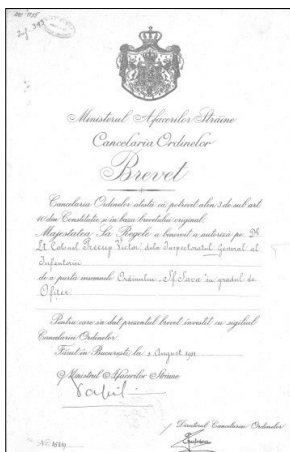 Ministerul Afacerilor Străine
Cancelaria Ordinelor
Brevet
Cancelaria Ordinelor atestă că, potrivit alin. 3 de sub art.
10 din Constituție și în baza brevetului original
Majestatea Sa Regele a binevoit a autoriza pe Dl
Lt. Colonel Precup Victor, dela Inspectoratul General al
Infanteriei
de a purta insemnele Ordinului „Sf. Sava” în gradul de
Ofițer
Pentru care s'a dat prezentul brevet învestit cu sigiliul
Cancelariei Ordinelor.
Făcut în București, la 1 August
Ministrul Afacerilor Străine
Directorul Cancelariei Ordinelor